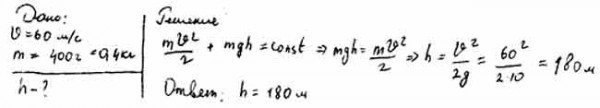 Дано:
υ = 60 м/с
m = 400г = 0,4кг
h - ?
Решение
mυ²/2 + mgh = const ⇒ mgh = mυ²/2 ⇒ h = υ²/2g = 60²/2·10 = 180м
Ответ: h = 180м